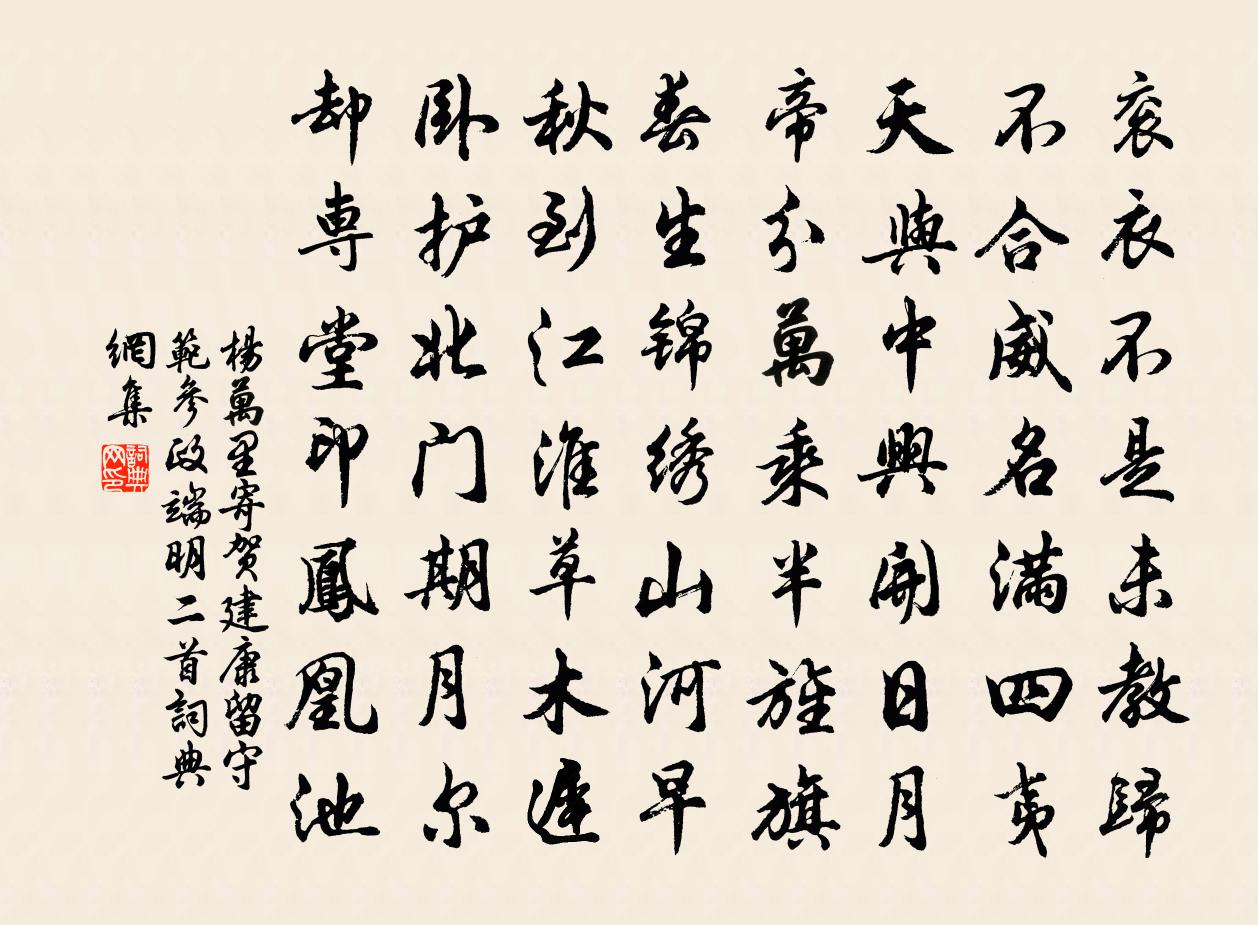 衮衣不是未教歸
不合威名满四夷
天與中興開日月
帝分萬乘半旌旗
春生锦绣山河早
秋到江淮草木遲
卧护北门期月尔
却専堂印鳳凰池
楊萬里寄贺建康留守
範參政端明二首詞典
網集
詞典
网印